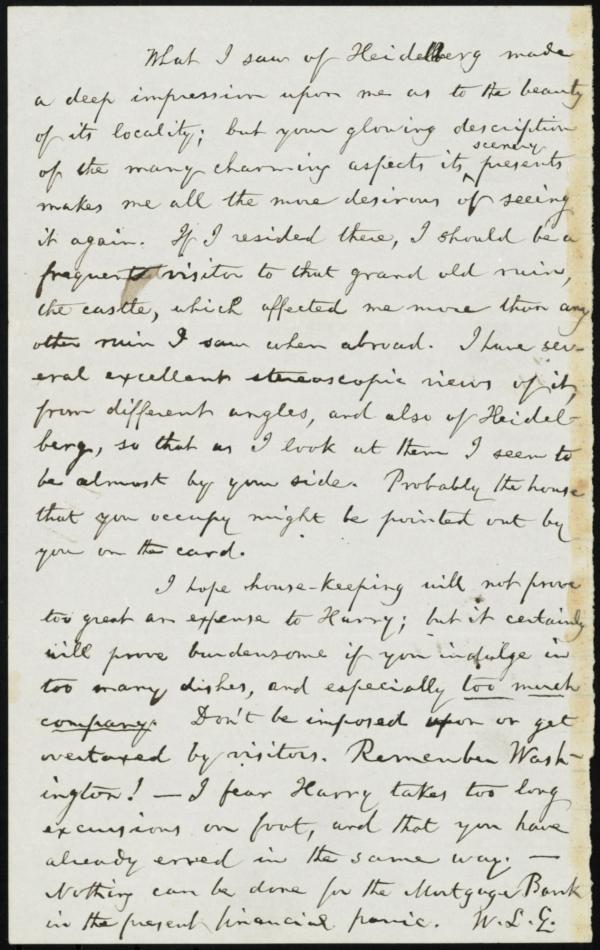 What I saw of Heidelberg made
a deep impression upon me as to the beauty
of its locality; but your glowing description
scenery
of the many charming aspects its ‸ presents
makes me all the more desirous of seeing
it again. If I resided there, I should be a
frequent visitor to that grand old ruin,
the castle, which affected me more than any
other ruin I saw when abroad. I have sev-
eral excellent stereoscopic views of it,
from different angles, and also of Heidel-
berg, so that as I look at them I seem to
be almost by your side. Probably the house
that you occupy might be pointed out by
you on the card.
I hope house-keeping will not prove
too great an expense to Harry; but it certainly
will prove burdensome if you indulge in
too many dishes, and especially too much
company. Don't be imposed upon or get
overtaxed by visitors. Remember Wash-
ington! — I fear Harry takes too long
excursions on foot, and that you have
already erred in the same way. —
Nothing can be done for the Mortgage Bank
in the present financial panic. W. L. G.